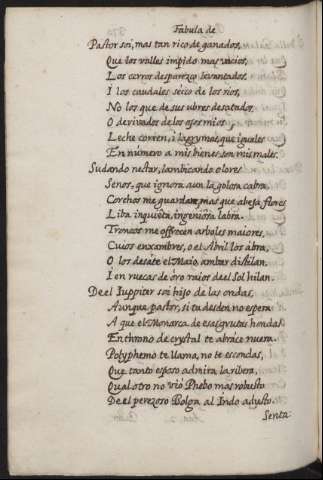 Fabula de
Pastor soi, mas tan rico de ganados,
Que los valles impido mas vacios,
Los cerros desparezco levantados,
I los caudales seico de los rios,
No los que de sus ubres desatados,
O derivados de los ojos mios,
Leche corren, i lagrymas, que iguales
En número a mis bienes son mis males.
Sudando nectar, lambicando olores
Senos, que ignora aun la golosa cabra,
Corchos me guardan, mas que abeja flores
Liba inquieta, ingeniosa labra.
Troncos me offrecen arboles maiores,
Cuios enxambres, o el Abril los abra,
O los desate el Maio, ambar distilan,
I en ruecas de oro raios de el Sol hilan.
De el Iuppiter soi hijo de las ondas,
Aunque pastor, si tu desden no espera
A que el Monarca de esas grutas hondas
En throno de crystal te abrace nuera.
Polyphemo te llama, no te escondas,
Que tanto esposo admira la ribera,
Qual otro no vió Phebo mas robusto
De el perezoso Bolga al Indo adusto.
Senta